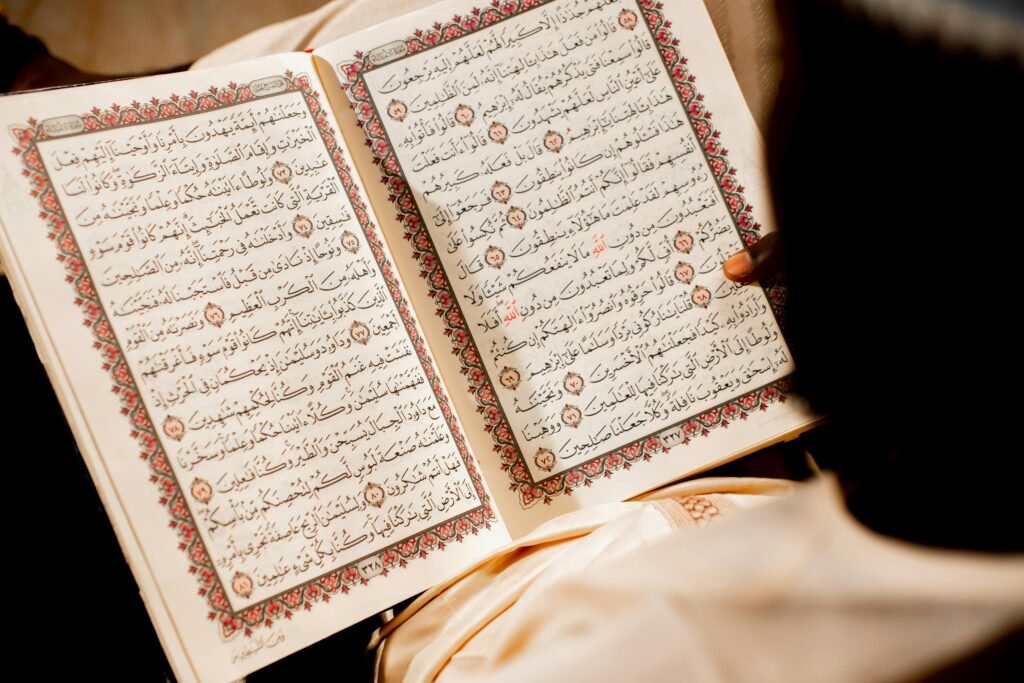 سُورَةُ الْأَنْبِيَاءِ
فَجَعَلَهُمْ جُذَٰذًا إِلَّا كَبِيرًا لَّهُمْ لَعَلَّهُمْ إِلَيْهِ يَرْجِعُونَ ٥٨
قَالُوا۟ مَن فَعَلَ هَٰذَا بِـَٔالِهَتِنَآ إِنَّهُۥ لَمِنَ ٱلظَّٰلِمِينَ ٥٩
قَالُوا۟ سَمِعْنَا فَتًى يَذْكُرُهُمْ يُقَالُ لَهُۥٓ إِبْرَٰهِيمُ ٦٠ قَالُوا۟ فَأْتُوا۟ بِهِۦ
عَلَىٰٓ أَعْيُنِ ٱلنَّاسِ لَعَلَّهُمْ يَشْهَدُونَ ٦١ قَالُوٓا۟ ءَأَنتَ فَعَلْتَ
هَٰذَا بِـَٔالِهَتِنَا يَٰٓإِبْرَٰهِيمُ ٦٢ قَالَ بَلْ فَعَلَهُۥ كَبِيرُهُمْ
هَٰذَا فَسْـَٔلُوهُمْ إِن كَانُوا۟ يَنطِقُونَ ٦٣ فَرَجَعُوٓا۟ إِلَىٰٓ
أَنفُسِهِمْ فَقَالُوٓا۟ إِنَّكُمْ أَنتُمُ ٱلظَّٰلِمُونَ ٦٤ ثُمَّ نُكِسُوا۟ عَلَىٰ
رُءُوسِهِمْ لَقَدْ عَلِمْتَ مَا هَٰٓؤُلَآءِ يَنطِقُونَ ٦٥ قَالَ
أَفَتَعْبُدُونَ مِن دُونِ ٱللَّهِ مَا لَا يَنفَعُكُمْ شَيْـًٔا وَلَا
يَضُرُّكُمْ ٦٦ أُفٍّ لَّكُمْ وَلِمَا تَعْبُدُونَ مِن دُونِ ٱللَّهِ أَفَلَا
٦٧ قَالُوا۟ حَرِّقُوهُ وَٱنصُرُوٓا۟ ءَالِهَتَكُمْ إِن كُنتُمْ
٦٨ قُلْنَا يَٰنَارُ كُونِى بَرْدًا وَسَلَٰمًا عَلَىٰٓ إِبْرَٰهِيمَ ٦٩
وَأَرَادُوا۟ بِهِۦ كَيْدًا فَجَعَلْنَٰهُمُ ٱلْأَخْسَرِينَ ٧٠ وَنَجَّيْنَٰهُ
وَلُوطًا إِلَى ٱلْأَرْضِ ٱلَّتِى بَٰرَكْنَا فِيهَا لِلْعَٰلَمِينَ ٧١ وَوَهَبْنَا
لَهُۥٓ إِسْحَٰقَ وَيَعْقُوبَ نَافِلَةً وَكُلًّا جَعَلْنَا صَٰلِحِينَ ٧٢
٣٢٧
سُورَةُ الْأَنْبِيَاءِ
وَجَعَلْنَٰهُمْ أَئِمَّةً يَهْدُونَ بِأَمْرِنَا وَأَوْحَيْنَآ إِلَيْهِمْ فِعْلَ
ٱلْخَيْرَٰتِ وَإِقَامَ ٱلصَّلَوٰةِ وَإِيتَآءَ ٱلزَّكَوٰةِ وَكَانُوا۟ لَنَا
عَٰبِدِينَ ٧٣ وَلُوطًا ءَاتَيْنَٰهُ حُكْمًا وَعِلْمًا وَنَجَّيْنَٰهُ مِنَ
ٱلْقَرْيَةِ ٱلَّتِى كَانَت تَّعْمَلُ ٱلْخَبَٰٓئِثَ إِنَّهُمْ كَانُوا۟ قَوْمَ سَوْءٍ
فَٰسِقِينَ ٧٤ وَأَدْخَلْنَٰهُ فِى رَحْمَتِنَآ إِنَّهُۥ مِنَ ٱلصَّٰلِحِينَ
٧٥ وَنُوحًا إِذْ نَادَىٰ مِن قَبْلُ فَٱسْتَجَبْنَا لَهُۥ فَنَجَّيْنَٰهُ
وَأَهْلَهُۥ مِنَ ٱلْكَرْبِ ٱلْعَظِيمِ ٧٦ وَنَصَرْنَٰهُ مِنَ ٱلْقَوْمِ
ٱلَّذِينَ كَذَّبُوا۟ بِـَٔايَٰتِنَآ إِنَّهُمْ كَانُوا۟ قَوْمَ سَوْءٍ فَأَغْرَقْنَٰهُمْ
أَجْمَعِينَ ٧٧ وَدَاوُۥدَ وَسُلَيْمَٰنَ إِذْ يَحْكُمَانِ فِى ٱلْحَرْثِ إِذْ
نَفَشَتْ فِيهِ غَنَمُ ٱلْقَوْمِ وَكُنَّا لِحُكْمِهِمْ شَٰهِدِينَ ٧٨
فَفَهَّمْنَٰهَا سُلَيْمَٰنَ وَكُلًّا ءَاتَيْنَا حُكْمًا وَعِلْمًا وَسَخَّرْنَا
مَعَ دَاوُۥدَ ٱلْجِبَالَ يُسَبِّحْنَ وَٱلطَّيْرَ وَكُنَّا فَٰعِلِينَ ٧٩
وَعَلَّمْنَٰهُ صَنْعَةَ لَبُوسٍ لَّكُمْ لِتُحْصِنَكُم مِّنۢ بَأْسِكُمْ
فَهَلْ أَنتُمْ شَٰكِرُونَ ٨٠ وَلِسُلَيْمَٰنَ ٱلرِّيحَ عَاصِفَةً تَجْرِى بِأَمْرِهِۦٓ
إِلَى ٱلْأَرْضِ ٱلَّتِى بَٰرَكْنَا فِيهَا وَكُنَّا بِكُلِّ شَىْءٍ عَٰلِمِينَ ٨١
٣٢٨
وَمِنَ الشَّيَاطِينِ